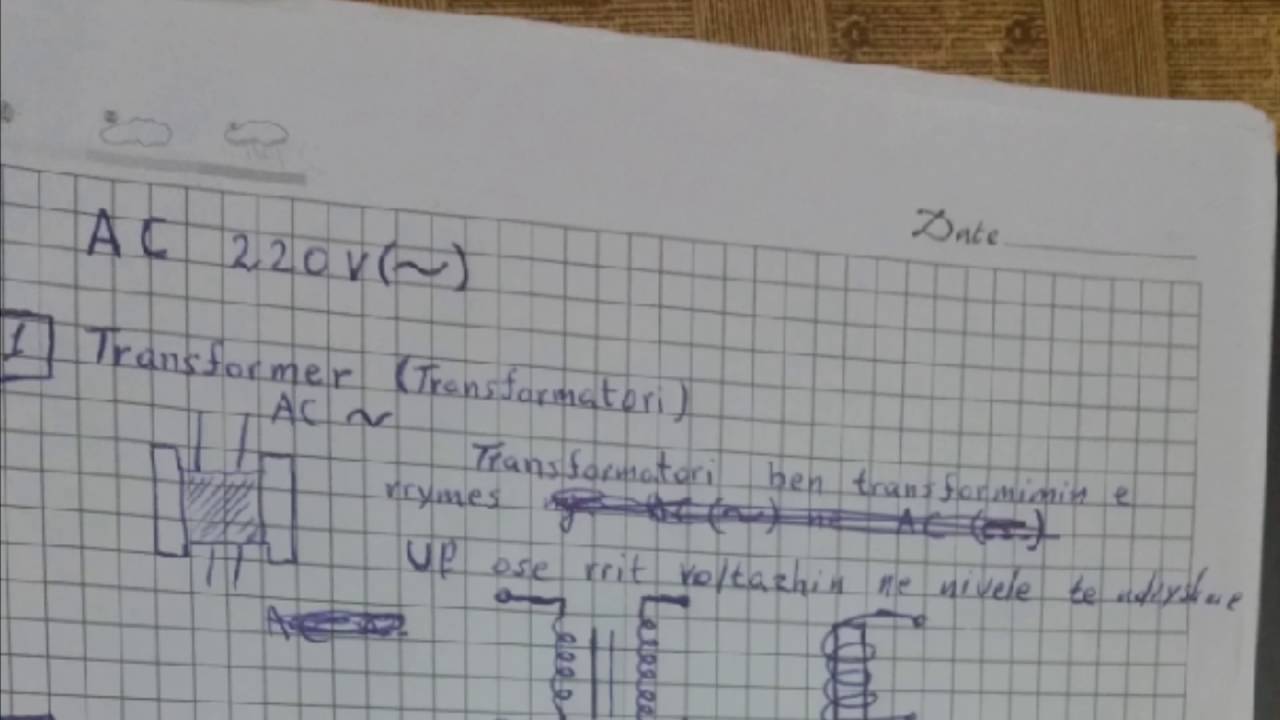 Date
AC 220V(~)
1 Transformer (Transformatori)
AC ~
Transformatori ben transformimin e
rrymes
Ul ose rrit voltazhin ne nivele te ndryshme